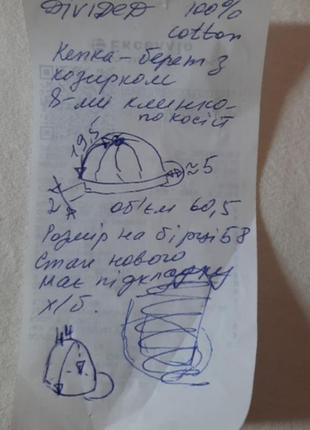 DIVIDED 100%
cotton
Кепка-берет з
козирком
8-ми клинко-
по косій
19,5
≈5
2
об'єм 60,5
Розмір на бірці 58
Стан нового
має підкладку
х/б.
44